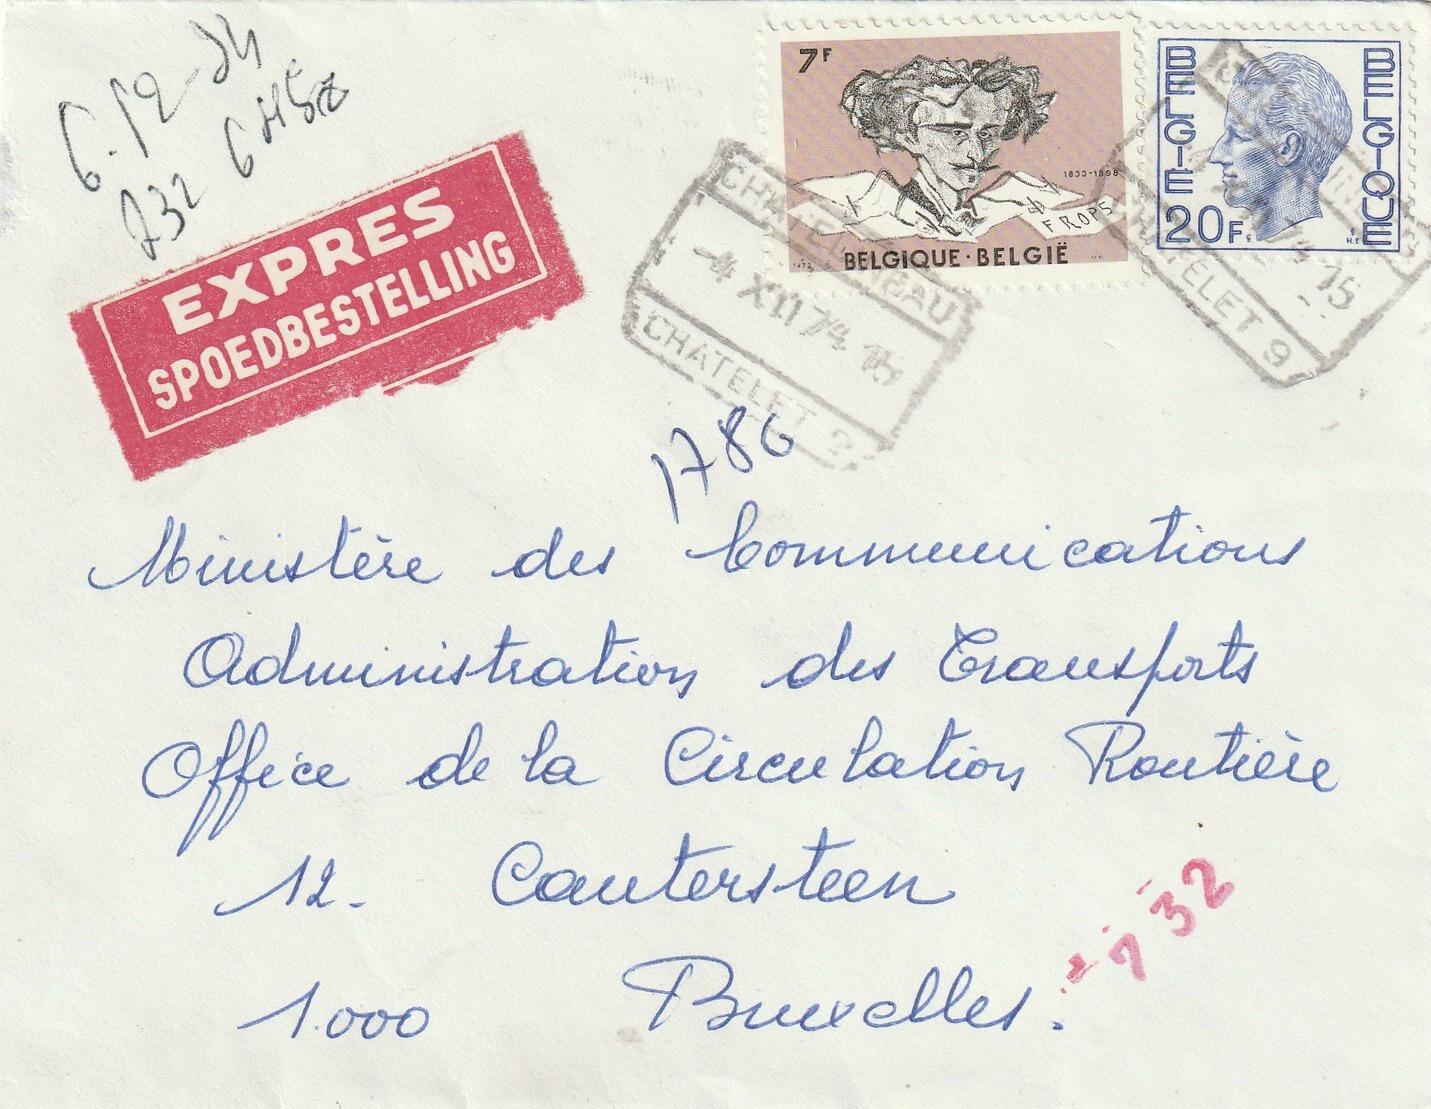 6-12-74
232 6H52
EXPRES
SPOEDBESTELLING
7F
1833-1898
F ROPS
BELGIQUE·BELGIË
BELGIE
BELGIQUE
20F
CHATELINEAU
-4 XII 74 15
CHATELET 2
15
CHATELET 9
1786
Ministère des Communications
Administration des Transports
Office de la Circulation Routière
12. Cantersteen
1.000 Bruxelles.
732